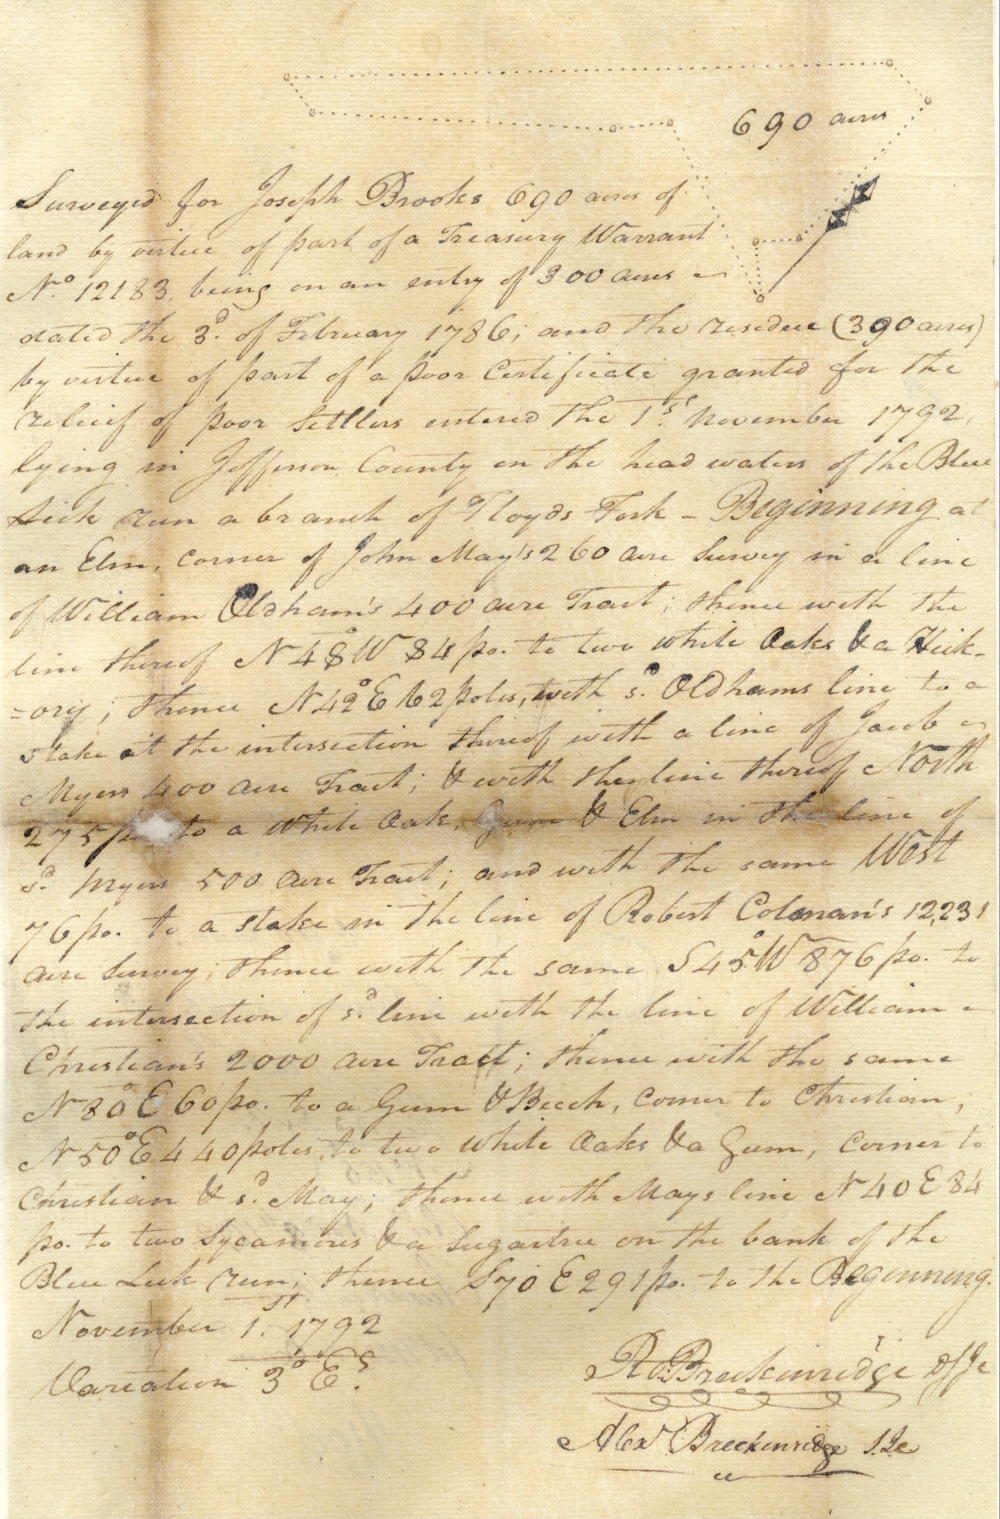 690 acres
Surveyed for Joseph Brooks 690 acres of
land by virtue of part of a Treasury Warrant
No. 12183, being on an entry of 300 acres
dated the 3d. of February 1786; and the residue (390 acres)
by virtue of part of a poor Certificate granted for the
relief of poor Settlers entered the 1st. November 1792,
lying in Jefferson County on the head waters of the Blue
Lick run a branch of Floyds Fork - Beginning at
an Elm, corner of John May's 260 acre Survey in a line
of William Oldham's 400 acre Tract; thence with the
line thereof N48°W 84 po. to two white Oaks & a Hick-
=ory; thence N42°E 62 poles, with sd. Oldhams line to a
stake at the intersection thereof with a line of Jacob
Myers 400 acre Tract; & with the line thereof North
275 po. to a white Oak, Gum & Elm in the line of
sd. Myers 500 acre Tract; and with the same West
76 po. to a stake in the line of Robert Coleman's 12,231
acre Survey; thence with the same S45°W 876 po. to
the intersection of sd. line with the line of William
Christian's 2000 acre Tract; thence with the same
N80°E 60 po. to a Gum & Beech, corner to Christian,
N50°E 440 poles, to two white Oaks & a Gum, corner to
Christian & sd. May; thence with Mays line N40E 84
po. to two Sycamores & a Sugartree on the bank of the
Blue Lick run; thence S70E 291 po. to the Beginning.
November 1st. 1792
Variation 3° Es.
Ro. Breckinridge
Alexr. Breckenridge